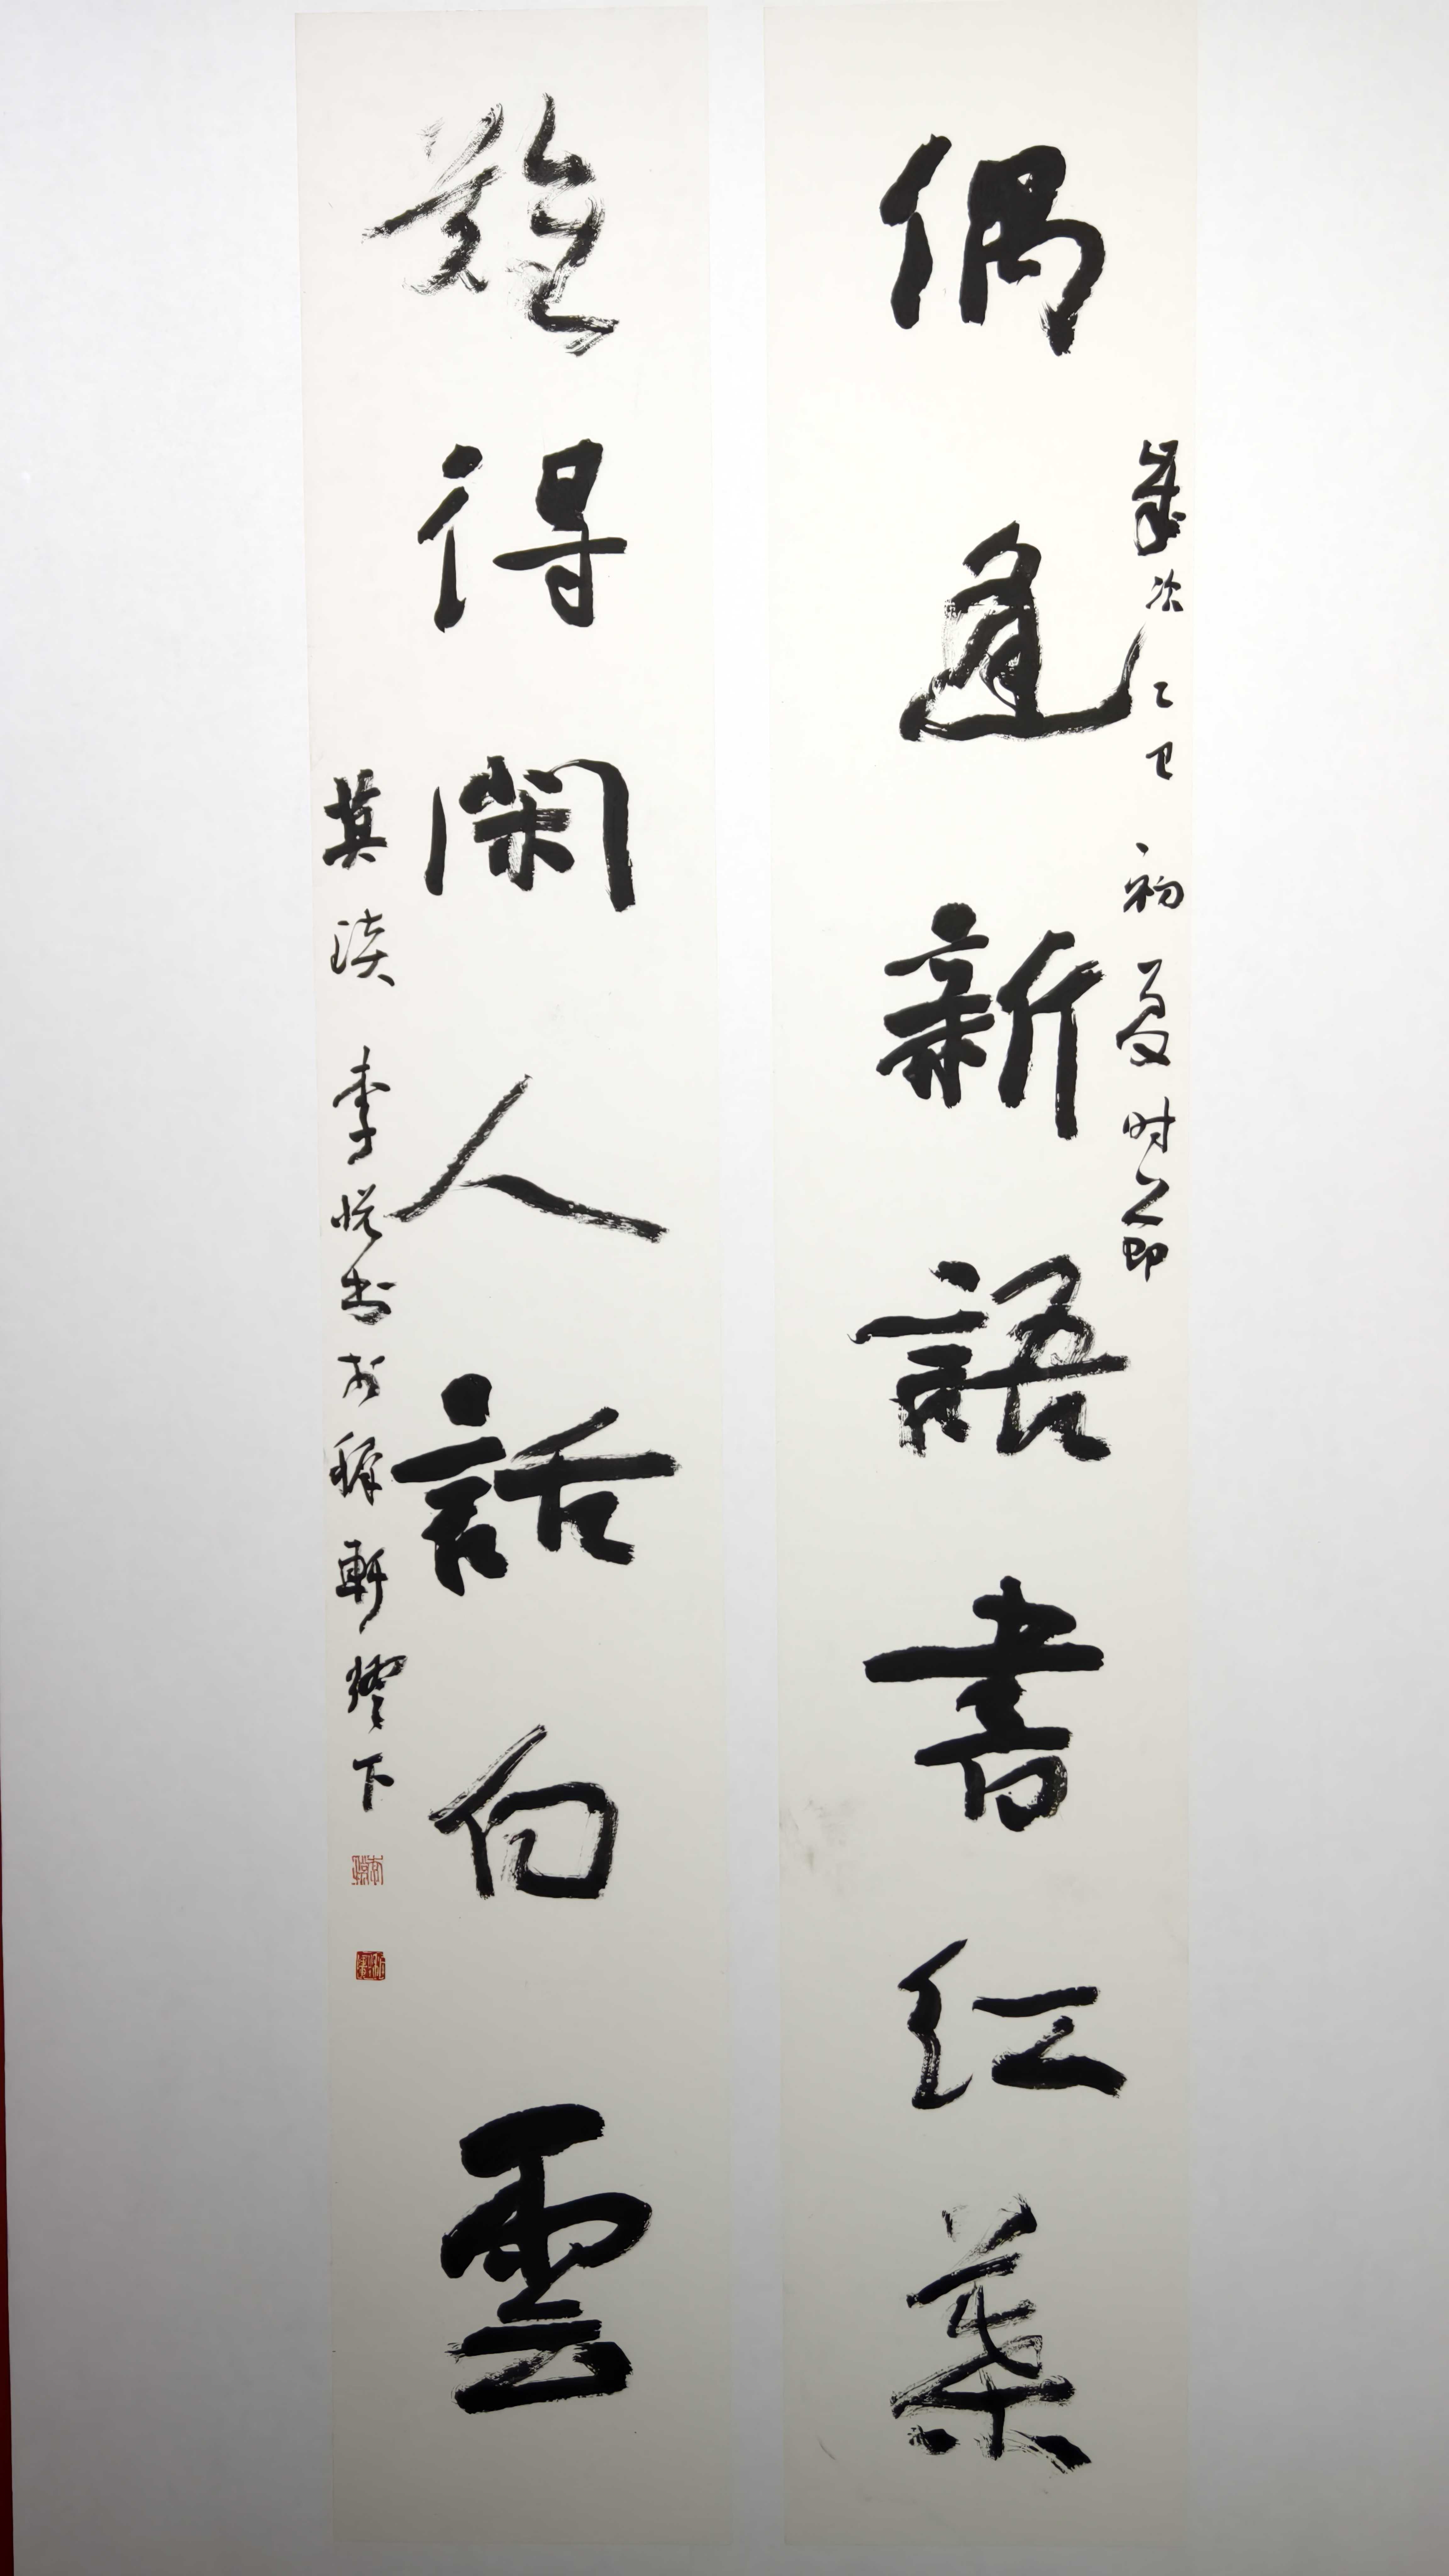 偶逢新語書紅葉
歲次乙巳初夏时之即
難得閑人話白雲
莫琰李悦书於稼軒燈下